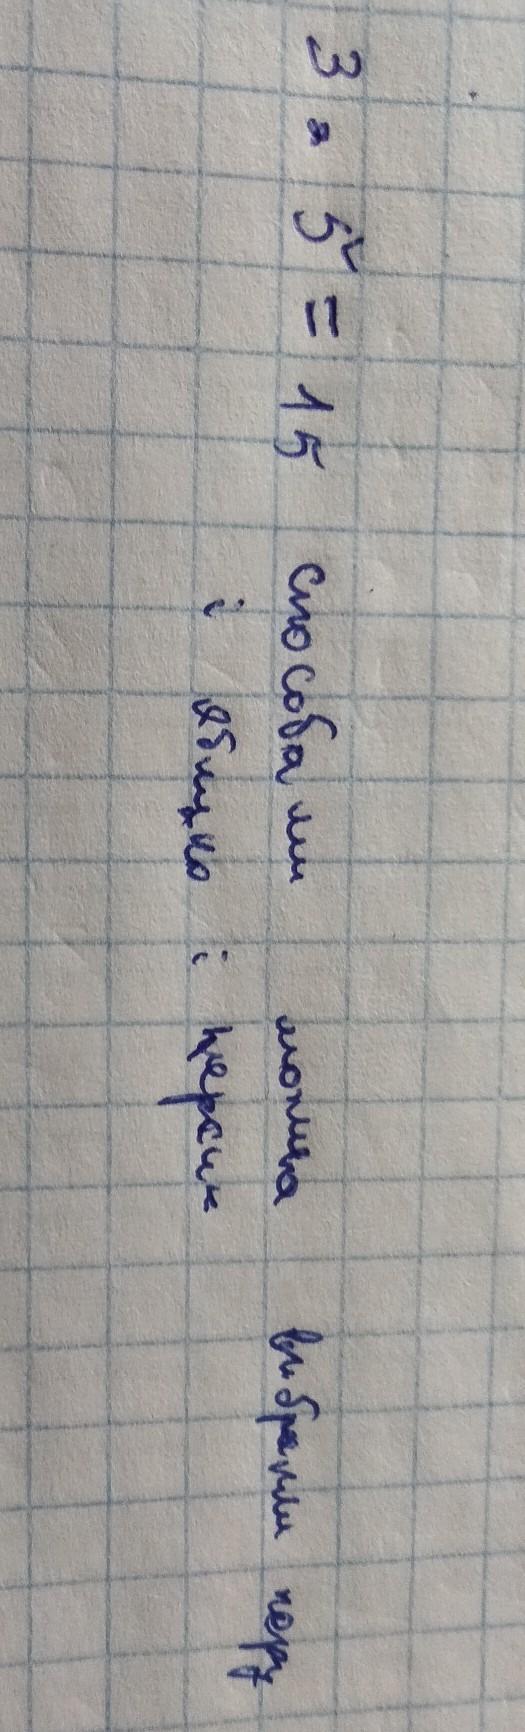 3 · 5 = 15 способами можна вибрати пару
і яблуко і персик